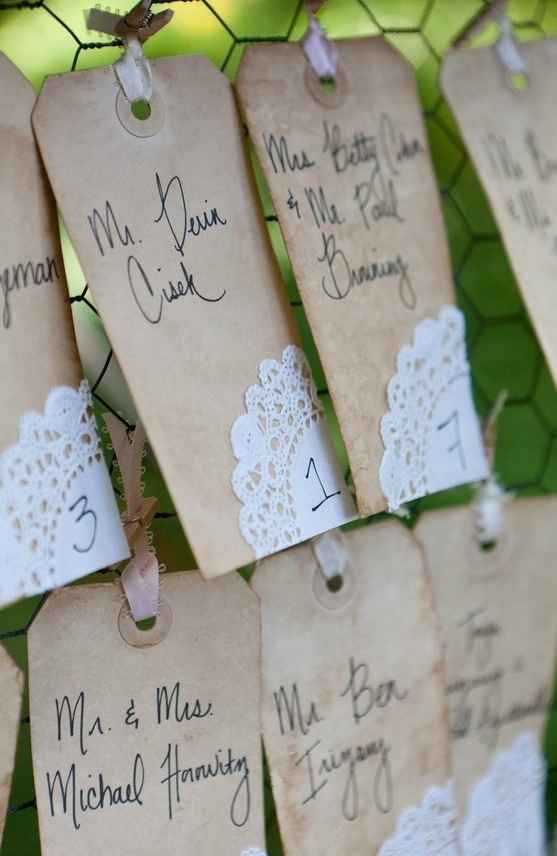 Mr. Devin
Cisek
1
Mrs Betty Cohen
& Mr. Paul
Bruining
7
3
Mr. & Mrs.
Michael Horowitz
Mr. Ben
Irizany